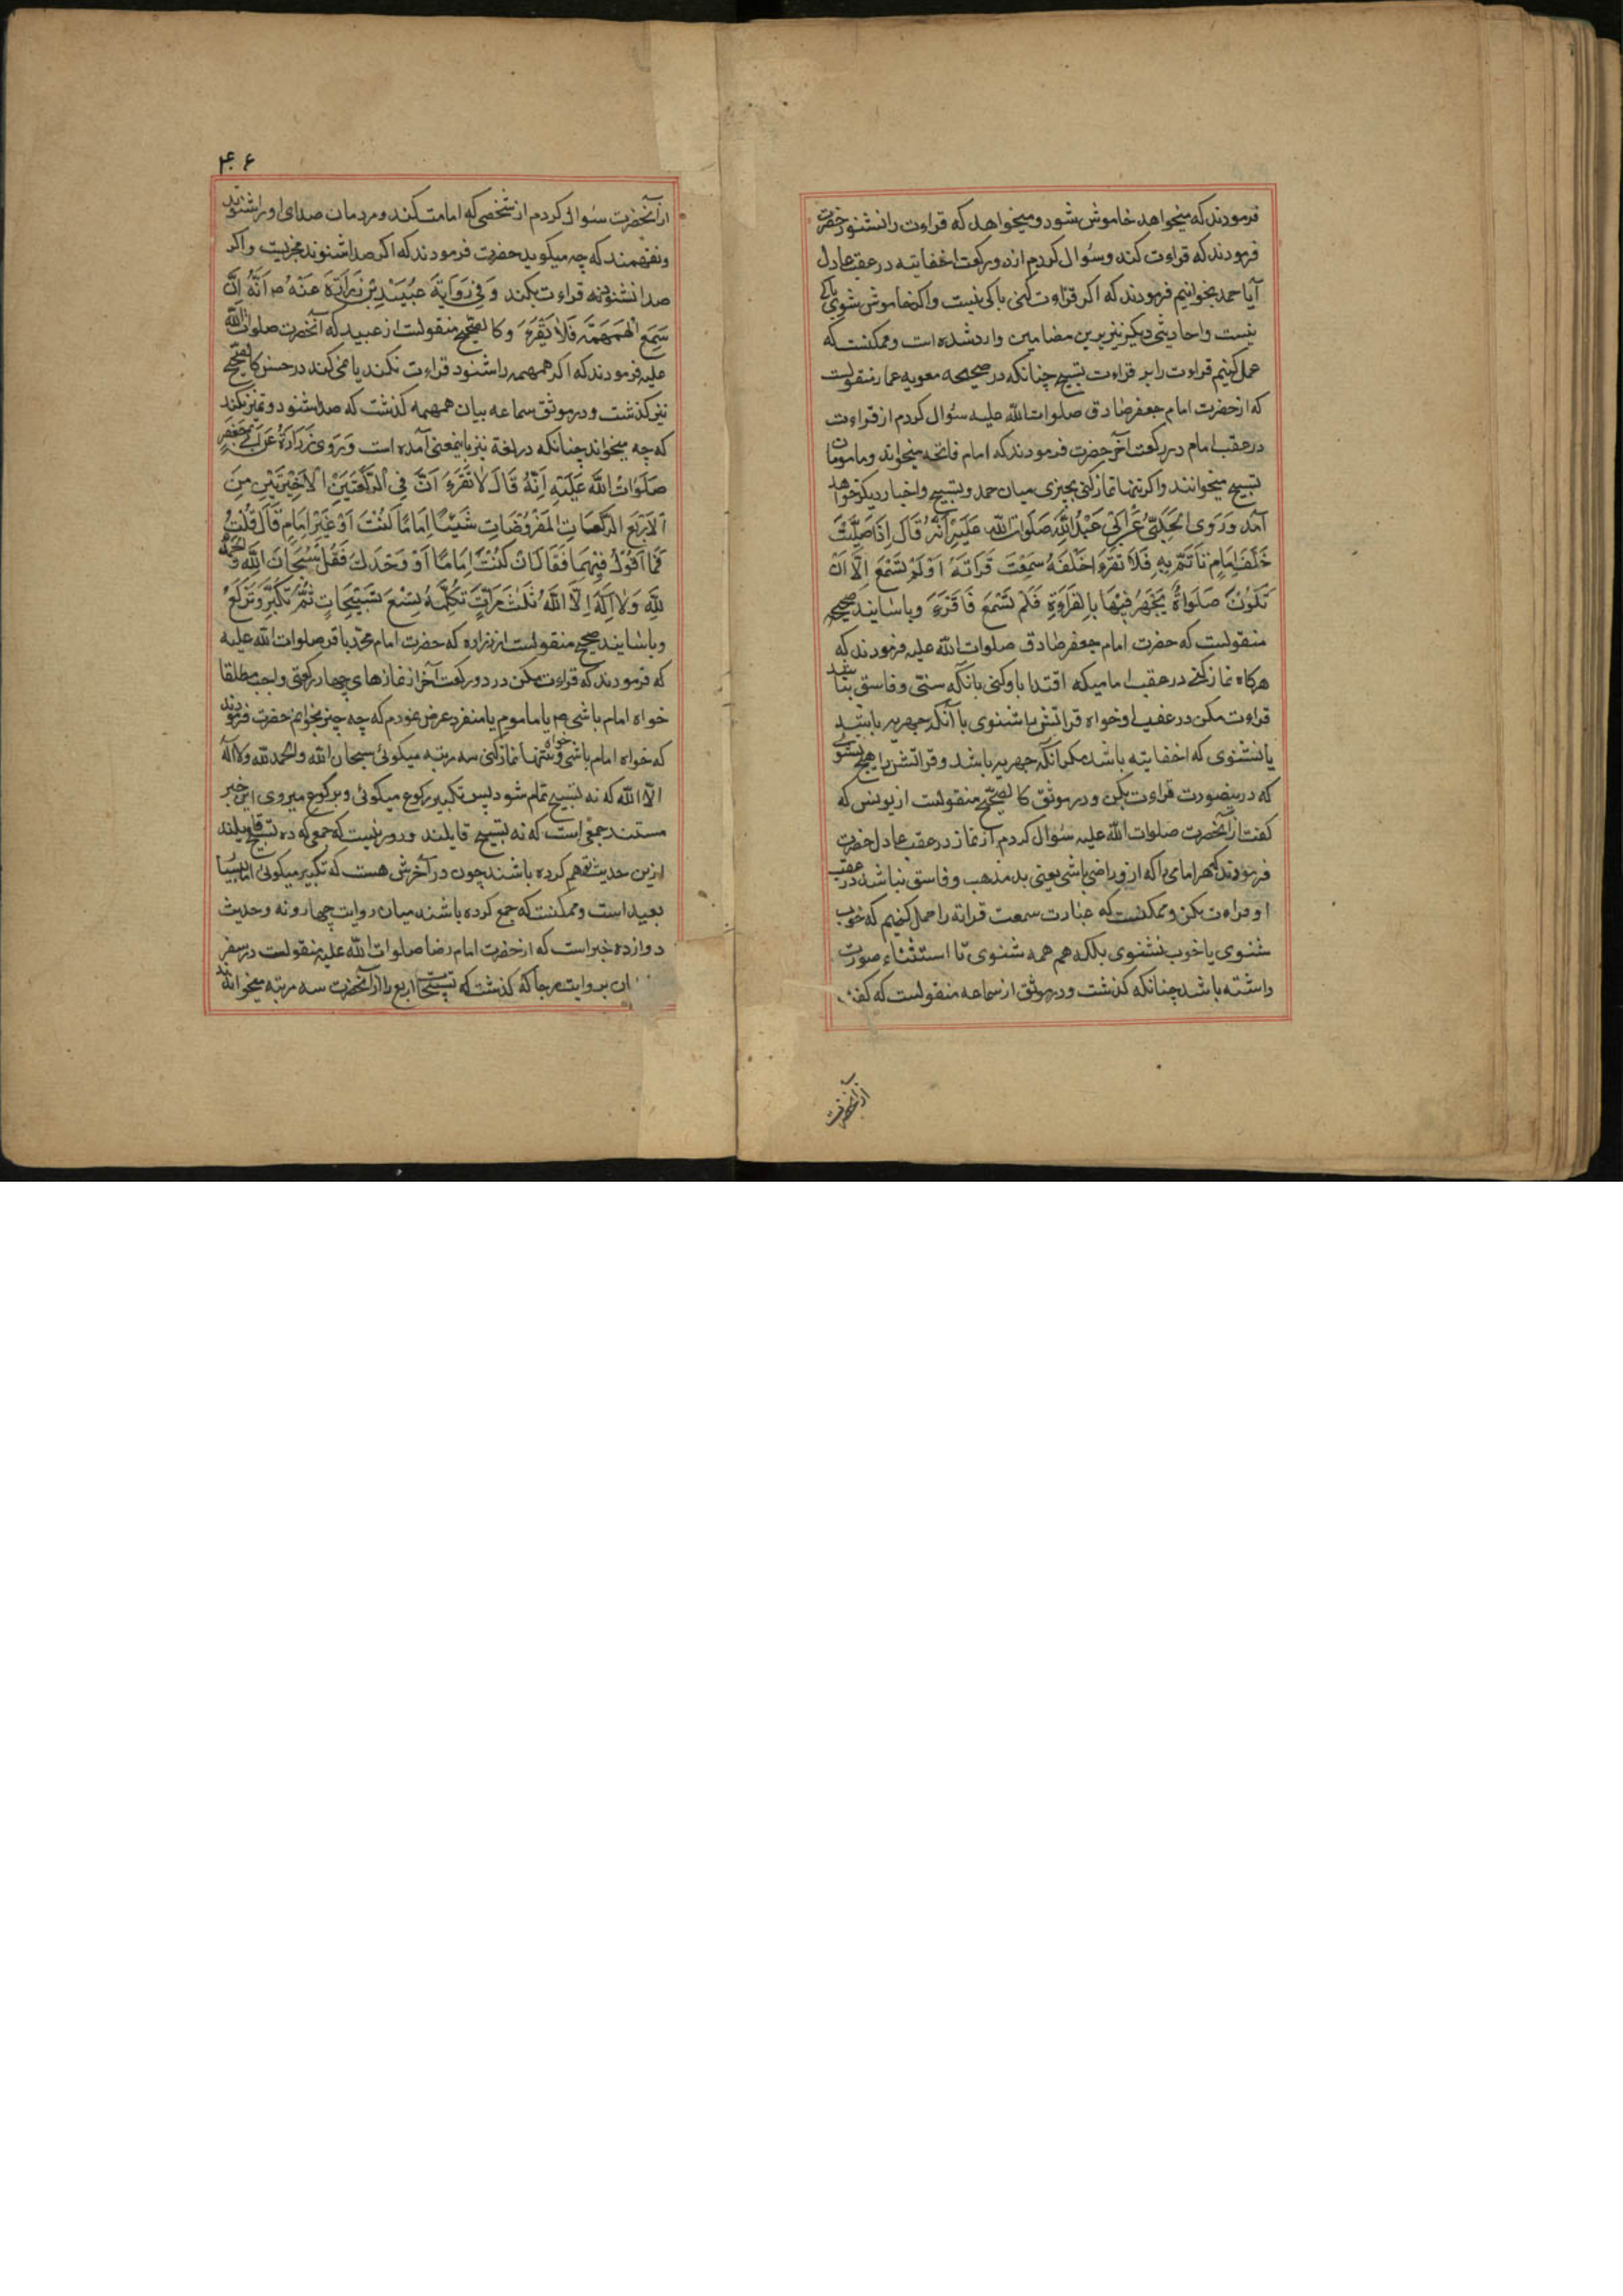 فرمودند که میخواهد خاموش شود و میخواهد که قراءت را نشنود حضرت
فرمودند که قراءت کند و سؤال کردم از دو رکعت اخفاتیه در عقب عادل
آیا حمد بخوانیم فرمودند که اکر قراءت کنی باکی نیست و اکر خاموش شوی باکی
نیست و احادیثی دیکر نیز برین مضامین وارد شده است و ممکنست که
حمل کنیم قراءت را بر قراءت تسبیح چنانکه در صحیحه معویه عمار منقولست
که از حضرت امام جعفر صادق صلوات الله علیه سؤال کردم از قراءت
در عقب امام در رکعت آخر حضرت فرمودند که امام فاتحه میخواند و مامومان
تسبیح میخوانند و اکر تنها نماز کنی مخیری میان حمد و تسبیح و اخبار دیکر خواهد
آمد وَرَوی الحَلَبیُّ عَن اَبی عَبْدِ اللّٰهِ صَلَوات اللّٰه عَلَیهِ اَنَّهُ قَالَ اِذَا صَلَّیْتَ
خَلْفَ اِمَامٍ تَأْتَمُّ بِهِ فَلاَ تَقْرَءْ خَلْفَهُ سَمِعْتَ قَرَاتَهُ اَوْ لَمْ تَسْمَعْ اِلَّا اَنْ
تَکُونَ صَلَوةً یُجْهَرُ فِیْهَا بِالْقِرَاءَةِ فَلَمْ تَسْمَعْ فَاقْرَءْ و باسانید صحیحه
منقولست که حضرت امام جعفر صادق صلوات الله علیه فرمودند که
هرکاه نماز کنی در عقب امامیکه اقتدا باو کنی بانکه سنی و فاسق نباشد
قراءت مکن در عقب او خواه قراتش را شنوی با آنکه جهریه باشد
یا نشنوی که اخفاتیه باشد مکر آنکه جهریه باشد و قراتش را هیچ نشنوی
که درینصورت قراءت بکن و در موثق کالصحیح منقولست از یونس که
کفت از آنحضرت صلوات الله علیه سؤال کردم از نماز در عقب عادل حضرت
فرمودند که هر امامی را که ازو راضی باشی یعنی بد مذهب و فاسق نباشد در عقب
او قراءت مکن و ممکنست که عبارت سمعت قراته را حمل کنیم که خوب
شنوی یا خوب نشنوی بلکه همهمه شنوی تا استثناء صورت
داشته باشد چنانکه کذشت و در موثق از سماعه منقولست که کفت
از آنحضرت
۴۰۶
از آنحضرت سؤال کردم از شخصی که امامت کند و مردمان صدای او را شنوند
و نفهمند که چه میکوید حضرت فرمودند که اکر صدا شنوند مجزیست و اکر
صدا نشنوند قراءت بکند وَ فِی رِوَایَةِ عُبَیْدِ بْنِ زُرَارَةَ عَنْهُ ص اَنَّهُ اِنْ
سَمِعَ الْهَمْهَمَةَ فَلاَ یَقْرَءْ و کالصحیح منقولست از عبید که آنحضرت صلوات الله
علیه فرمودند که اکر همهمه را شنود قراءت نکند یا نمی کند در حسن کالصحیح
نیز کذشت و در موثق سماعه بیان همهمه کذشت که صدا شنود و تمیز نکند
که چه میخواند چنانکه در لغة نیز باینمعنی آمده است وَ رَوی زُرَارَةُ عَن اَبی جَعْفَرٍ
صَلَوَاتُ اللّٰه عَلَیْهِ اِنَّهُ قَالَ لاَ تَقْرَءْ اَنَّ فِی الرَّکْعَتَیْنِ الْاَخِیْرَتَیْنِ مِنَ
الْاَرْبَعِ الرَّکَعَاتِ الْمَفْرُوضَاتِ شَیْئًا اِمَامًا کُنْتَ اَوْ غَیْرَ اِمَامٍ قَالَ قُلْتُ
فَمَا اَقُوْلُ فِیْهِمَا فَقَالَ اِنْ کُنْتَ اِمَامًا اَوْ وَحْدَکَ فَقُلْ سُبْحَانَ اللّٰهِ وَ الْحَمْدُ
لِلّٰهِ وَلاَ اِلَهَ اِلَّا اللّٰهُ ثَلٰثَ مَرَّاتٍ تُکَمِّلُهُ تِسْعَ تَسْبِیْحَاتٍ ثُمَّ تُکَبِّرُ وَ تَرْکَعُ
و باسانید صحیحه منقولست از زراره که حضرت امام محمد باقر صلوات الله علیه
که فرمودند که قراءت مکن در دو رکعت آخر از نمازهای چهار رکعتی واجب مطلقا
خواه امام باشی یا ماموم یا منفرد عرض نمودم که چه چیز بخوانم حضرت فرمودند
که خواه امام باشی و خواه تنها نماز کنی سه مرتبه میکوئی سبحان الله و الحمد لله و لا اله
الا الله که نه تسبیح تمام شود پس تکبیر رکوع میکوئی و برکوع میروی این خبر
مستند جمعی است که نه تسبیح قایلند و دور نیست که جمعی که ده تسبیح قایلند
ازین حدیث فهم کرده باشند چون در آخرش هست که تکبیر میکوئی اما بسیار
بعید است و ممکنست که جمع کرده باشند میان روایت چهار و نه و حدیث
دوازده خبر است که از حضرت امام رضا صلوات الله علیه منقولست در سفر
ان بروایت رجا که کذشت که تسبیحات اربع را از آنحضرت سه مرتبه میخواندند